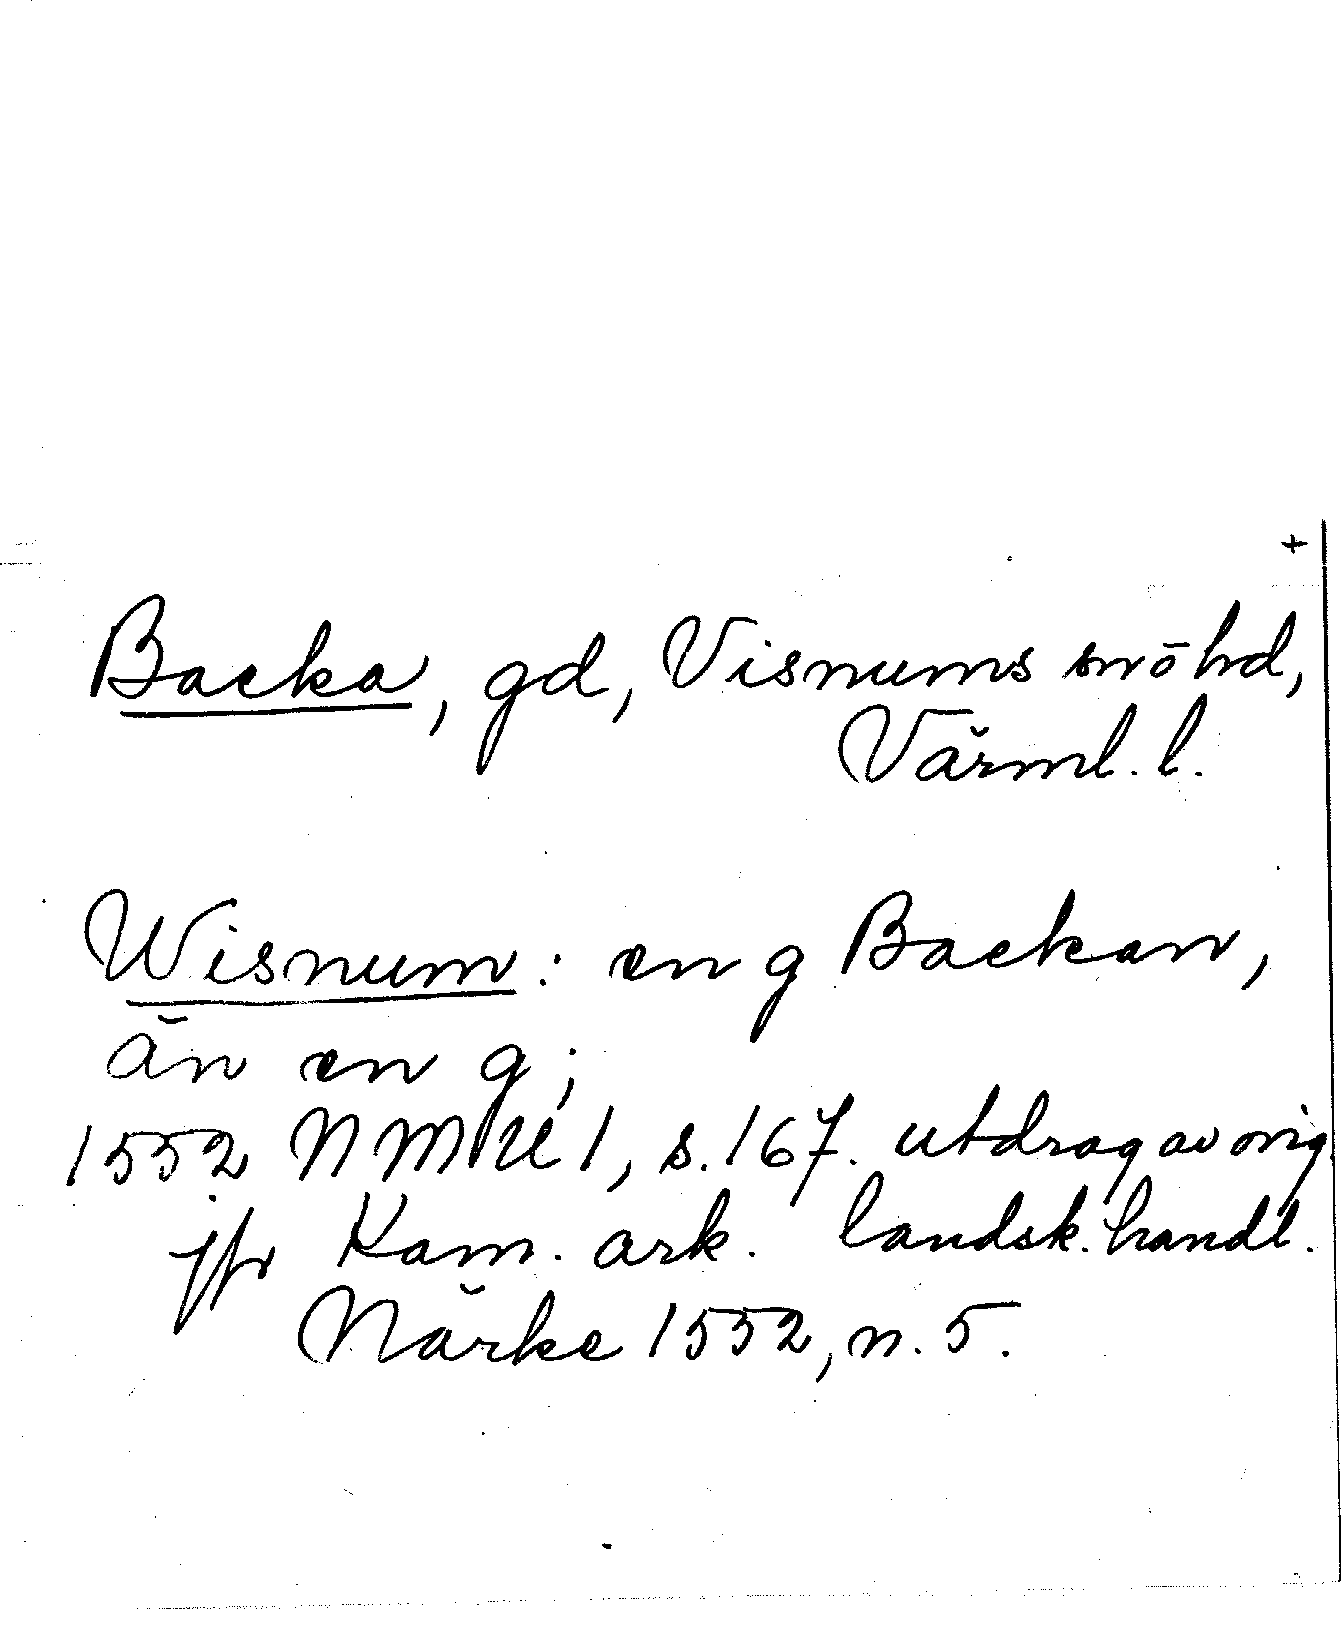 +
Backa, gd, Visnums snöhd,
Värml. l.
Wisnum: en g Backan,
än en g;
1552 NMU 1, s. 167. utdrag av orig
jfr Kam. ark. landsk. handl.
Närke 1552, n. 5.